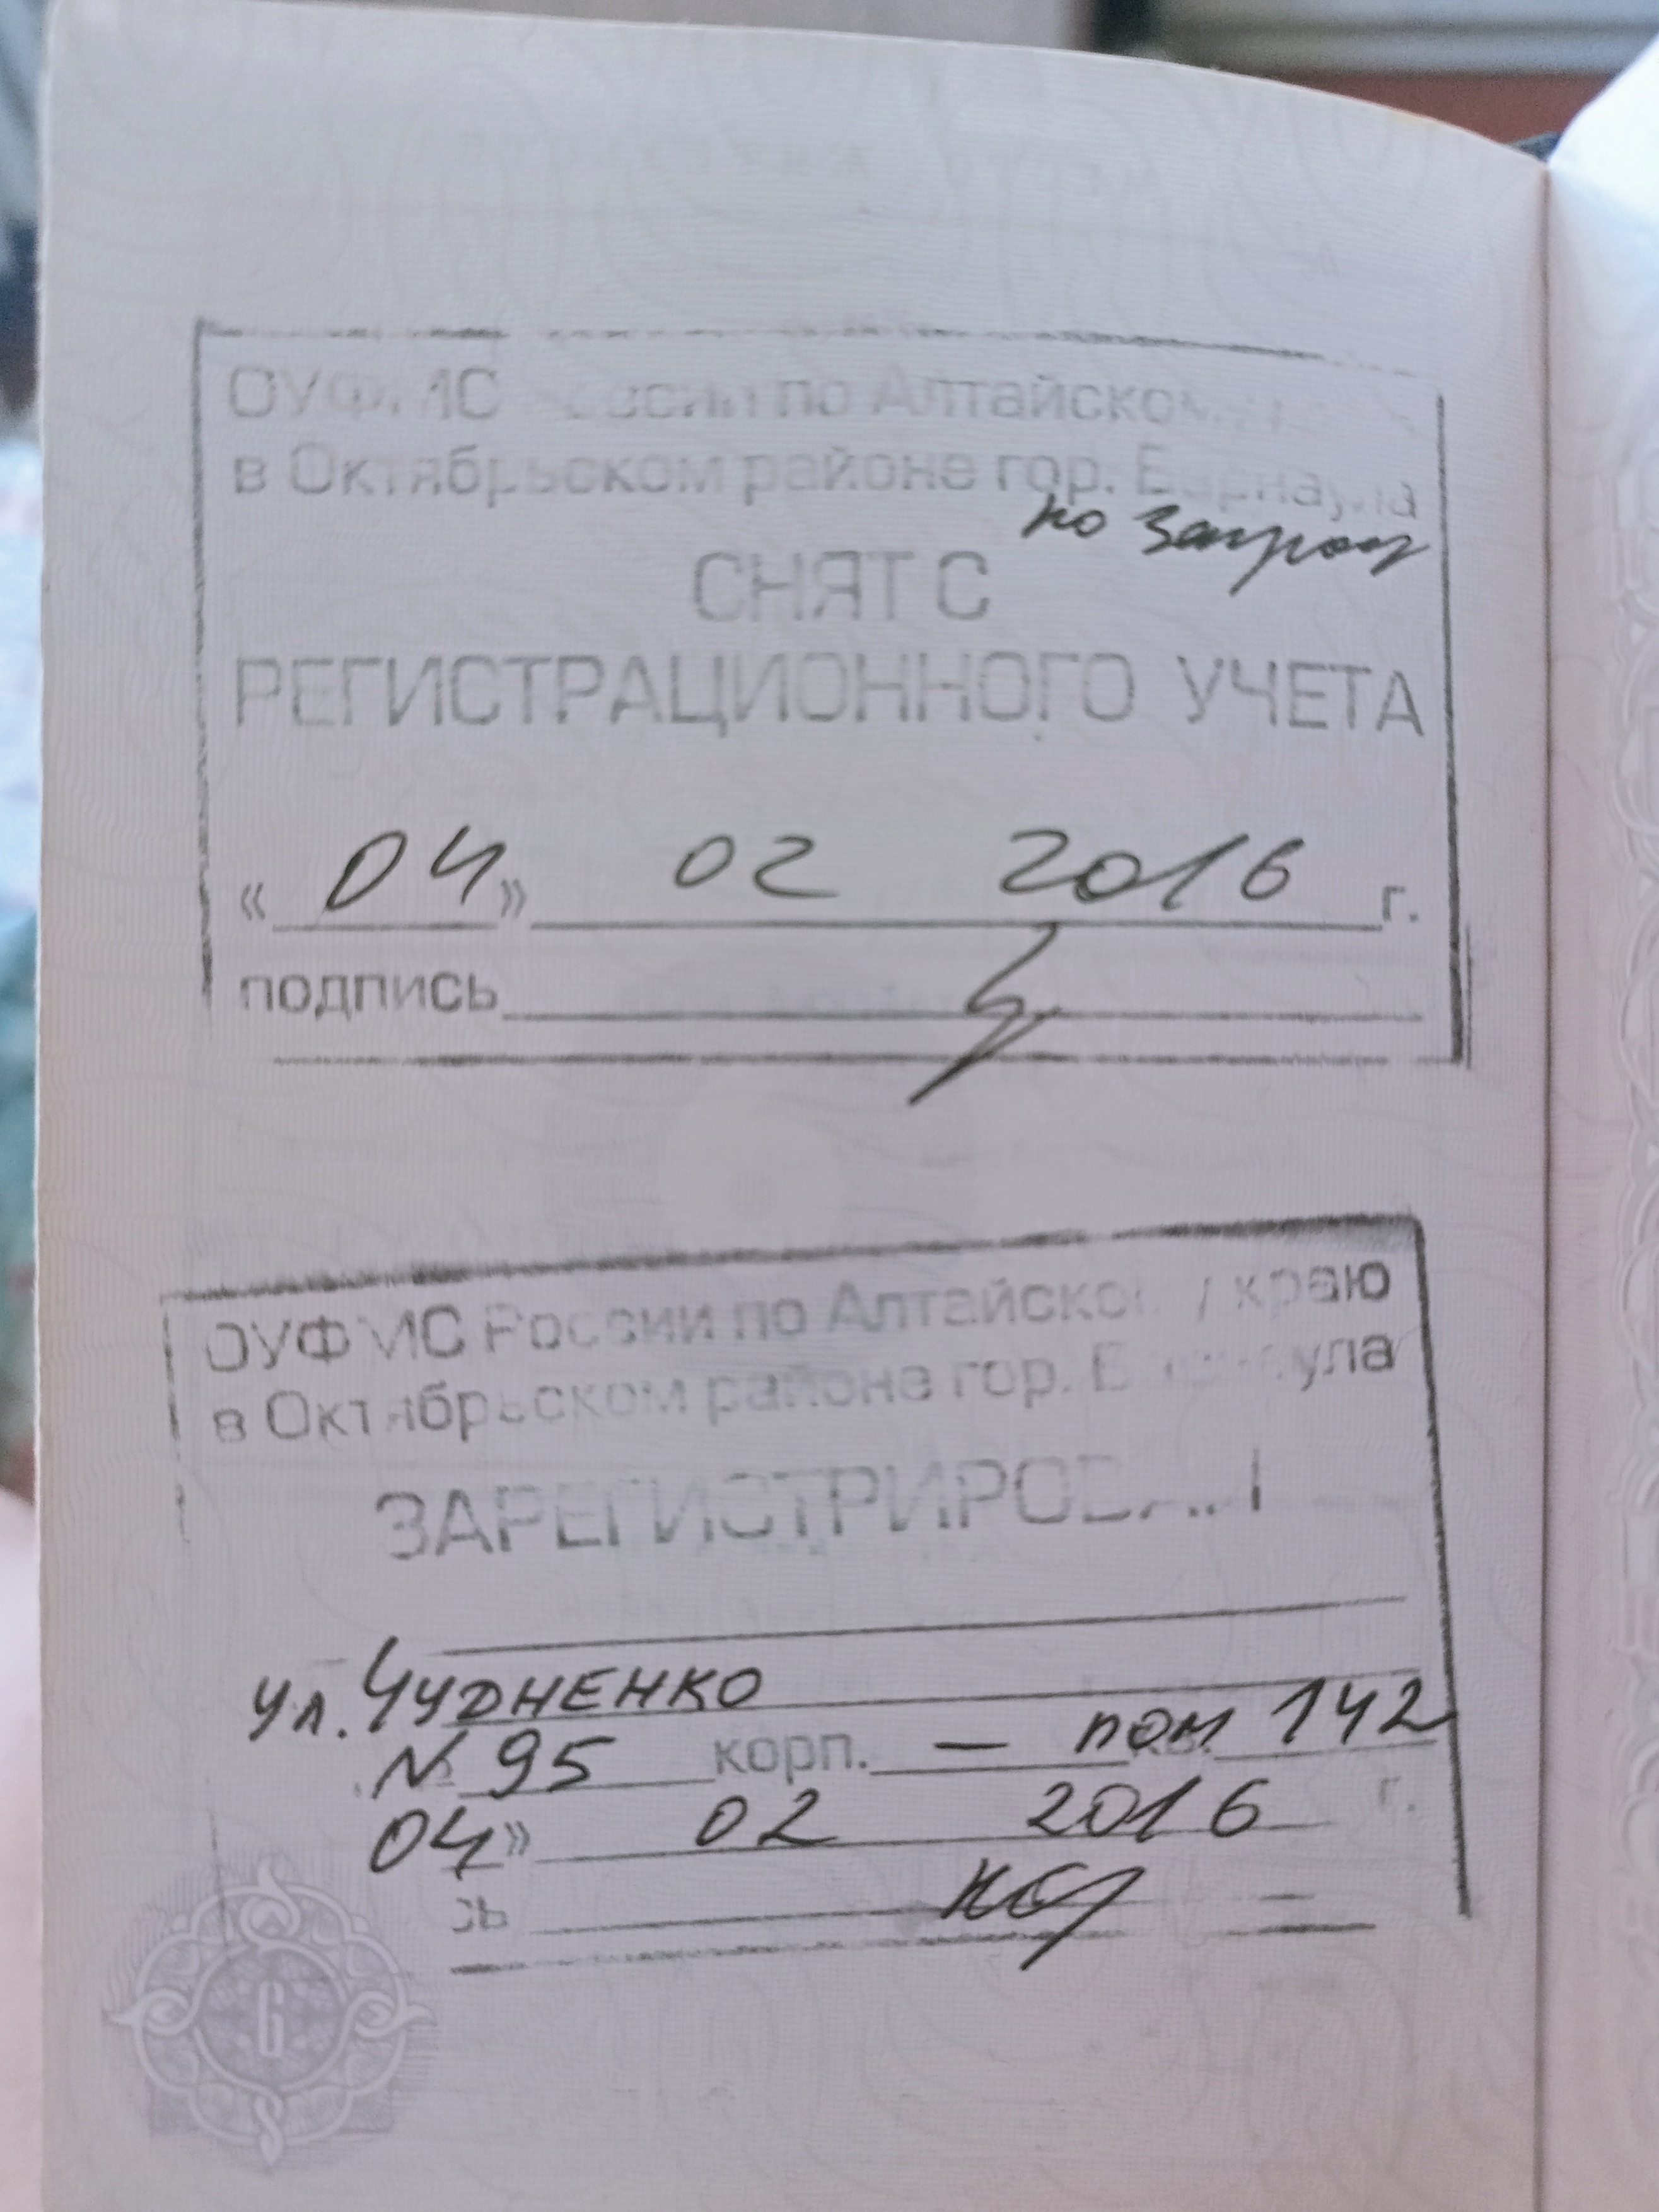 ОУФМС России по Алтайскому
в Октябрьском районе гор. Барнаула
по запросу
СНЯТ С
РЕГИСТРАЦИОННОГО УЧЕТА
« 04 » 02 2016 г.
подпись
ОУФМС России по Алтайскому краю
в Октябрьском районе гор. Барнаула
ЗАРЕГИСТРИРОВАН
ул. Чудненко
№ 95 корп. — пом 142
04» 02 2016 г.
сь
6